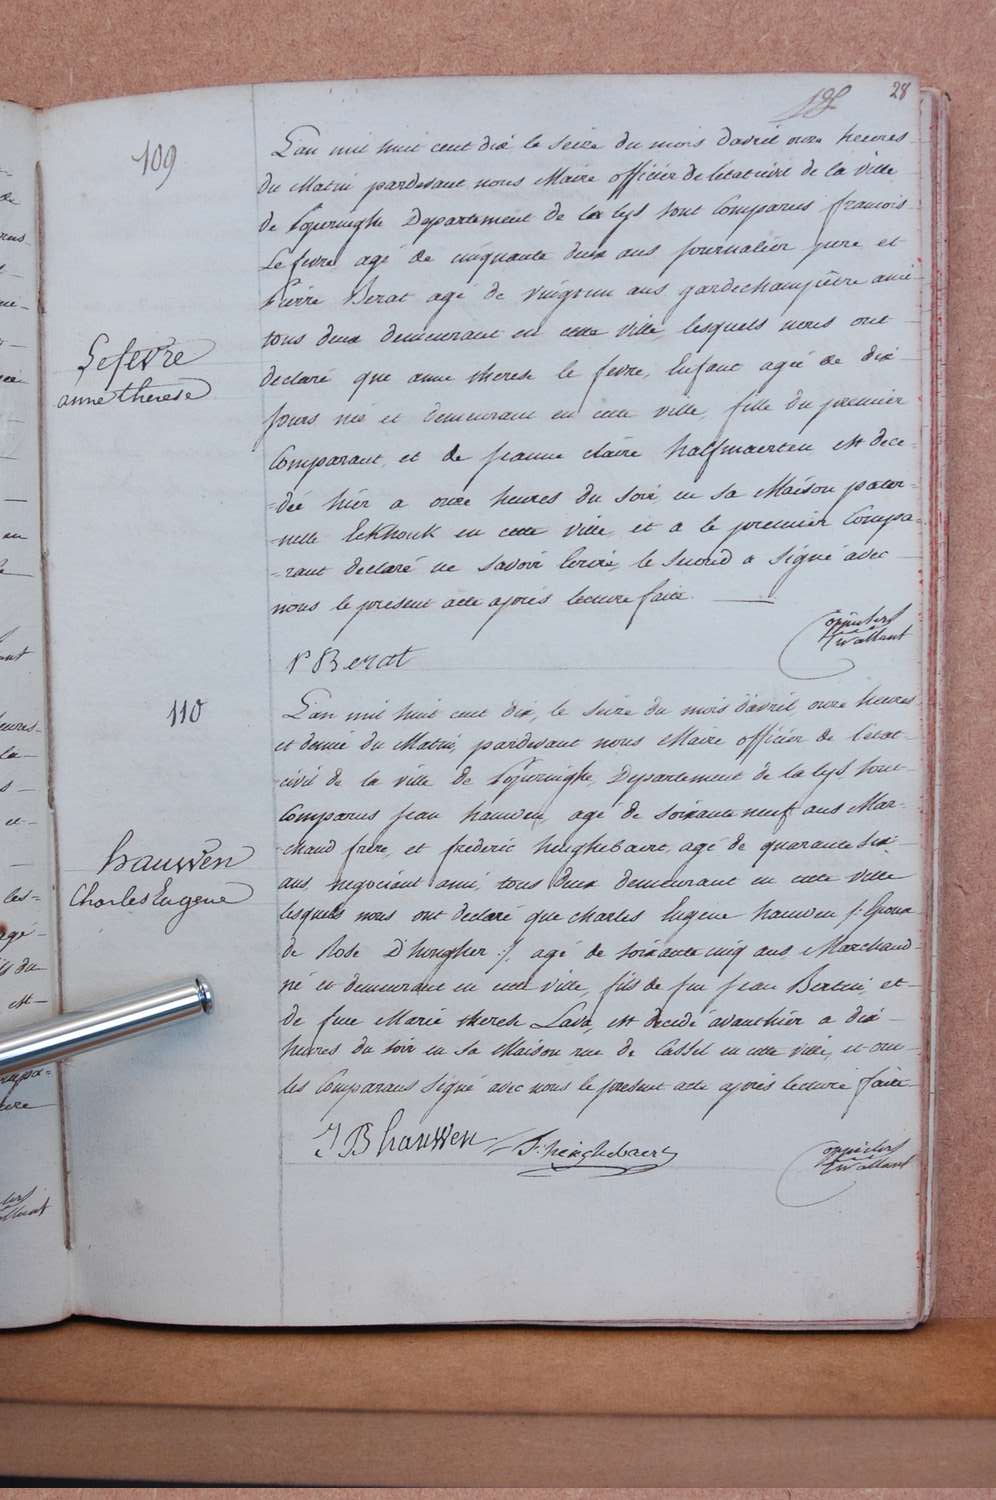 28
109
L'an mil huit cent dix le seize du mois d'avril onze heures
du Matin pardevant nous Maire officier de l'état civil de la ville
de Poperinghe Departement de la lys sont Comparus francois
Le fevre agé de cinquante deux ans journalier pere et
Pierre Berat agé de vingt un ans gardechampêtre ami
tous deux demeurant en cette ville, lesquels nous ont
declaré que anne therese le fevre, Enfant agée de dix
Lefevre
anne therese
jours née et demeurant en cette ville, fille du premier
Comparant, et de jeanne claire halfmaerten est dece-
=dée hier a onze heures du soir en sa Maison pater-
=nelle Ekhouk en cette ville, et a le premier Compa=
=rant declaré ne savoir Ecrire, le second a signé avec
nous le present acte après lecture faite.
P Berat
110
L'an mil huit cent dix, le seize du mois d'avril, onze heures
et demie du Matin, pardevant nous Maire officier de l'etat-
civil de la ville de Poperinghe, Departement de la lys sont
Comparus jean hauwen, agé de soixante neuf ans Mar-
chand frère, et frederic heughebaert, agé de quarante six
ans, negociant ami, tous deux demeurant en cette ville
hauwen
Charles Eugene
lesquels nous ont declaré que charles Eugene hauwen /: Epoux
de Rose D'hongher :/, agé de soixante cinq ans Marchand
né et demeurant en cette ville, fils de feu jean Bertin, et
de feue Marie therese Lava, est decédé avant hier a dix
heures du soir en sa Maison rue de Cassel en cette ville, et ont
les Comparans signé avec nous le present acte après lecture faite
J B hauwen F: heughebaert